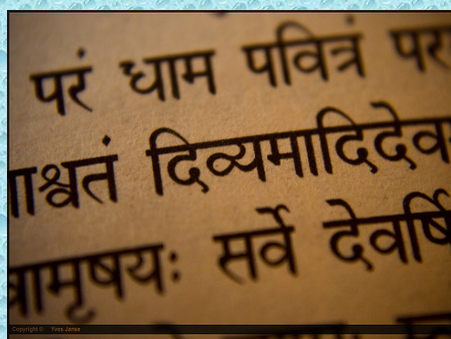 परं धाम पवित्रं पर
ाश्वतं दिव्यमादिदेव
वामृषयः सर्वे देवर्षि
Copyright © Yves Janse